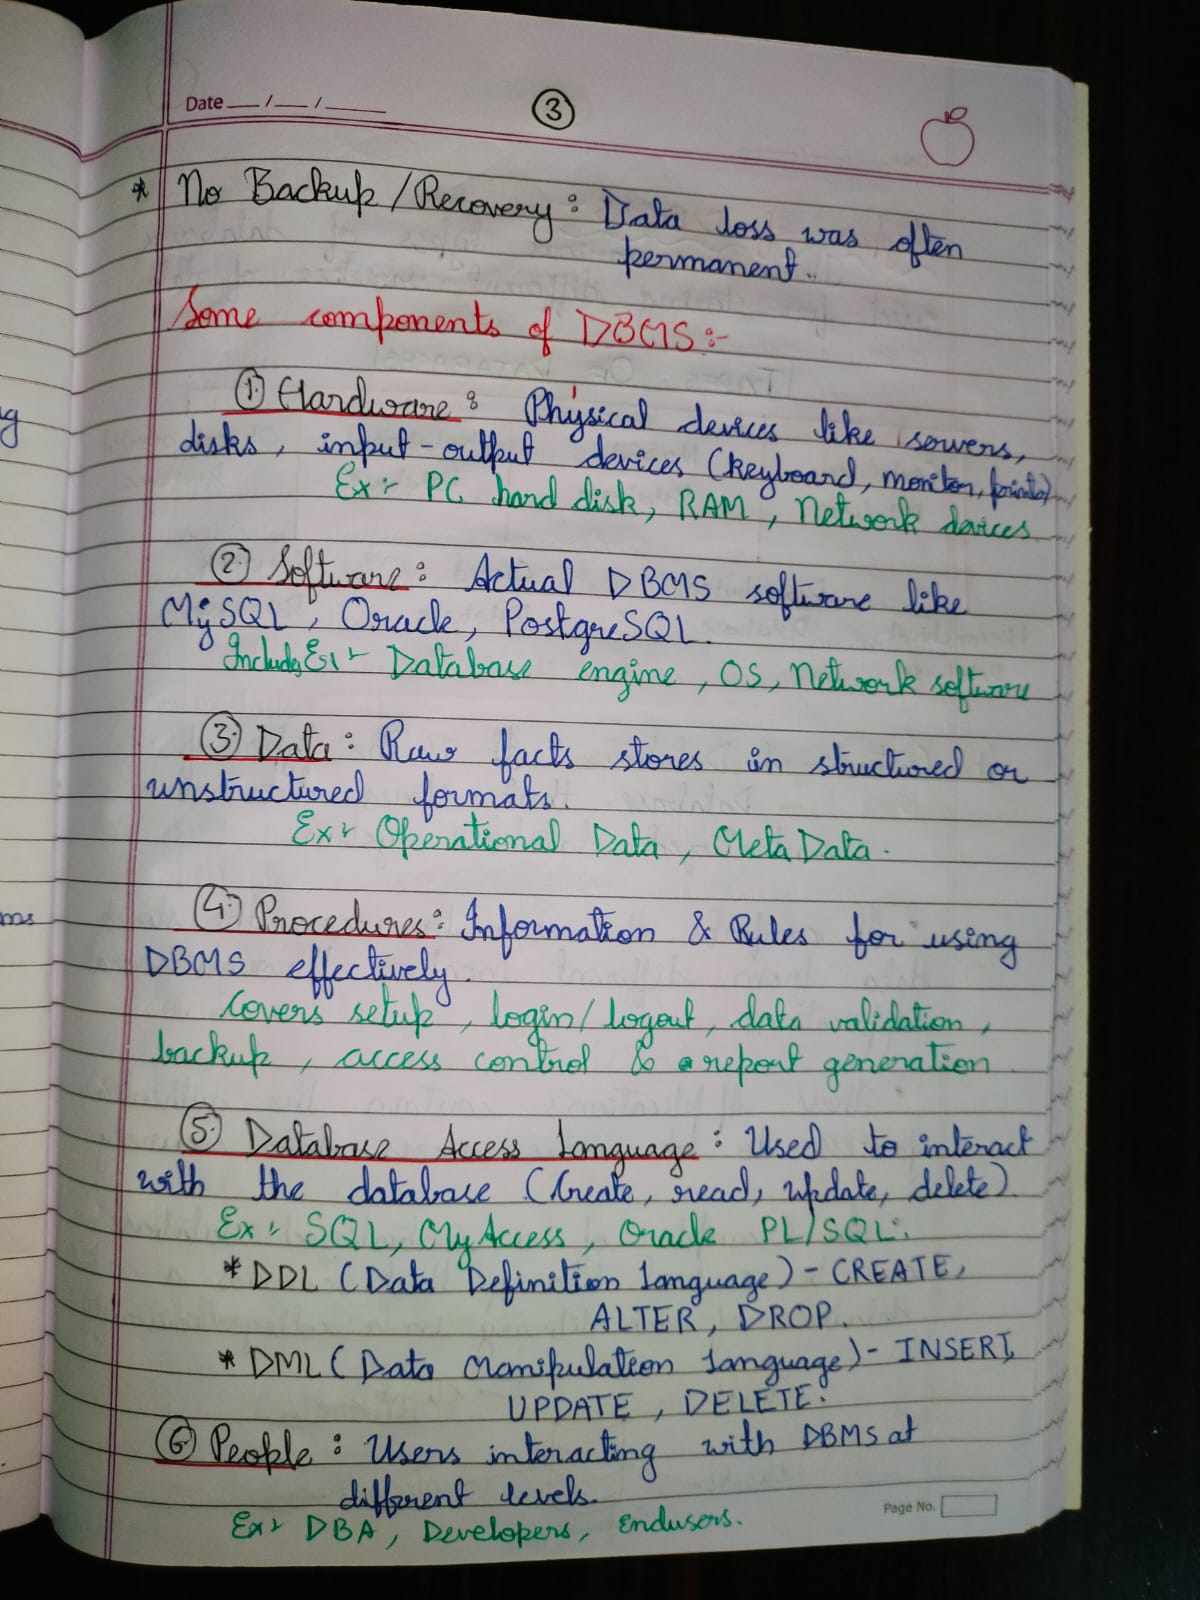 Date __/__/____
3
* No Backup/Recovery: Data loss was often
permanent..
Some components of DBMS:-
1. Hardware: Physical devices like servers,
disks, input-output devices (keyboard, monitor, printer)
Ex:- PC hard disk, RAM, Network devices
2. Software: Actual DBMS software like
MySQL, Oracle, PostgreSQL.
Includes, Ex:- Database engine, OS, Network software
3. Data: Raw facts stores in structured or
unstructured formats.
Ex:- Operational Data, Meta Data.
4. Procedures: Information & Rules for using
DBMS effectively.
Covers setup, login/logout, data validation,
backup, access control & report generation
5. Database Access Language: Used to interact
with the database (Create, read, update, delete)
Ex:- SQL, MyAccess, Oracle PL/SQL.
* DDL (Data Definition Language) - CREATE,
ALTER, DROP.
* DML (Data Manipulation Language) - INSERT,
UPDATE, DELETE.
6. People: Users interacting with DBMS at
different levels.
Page No.
Ex:- DBA, Developers, Endusers.